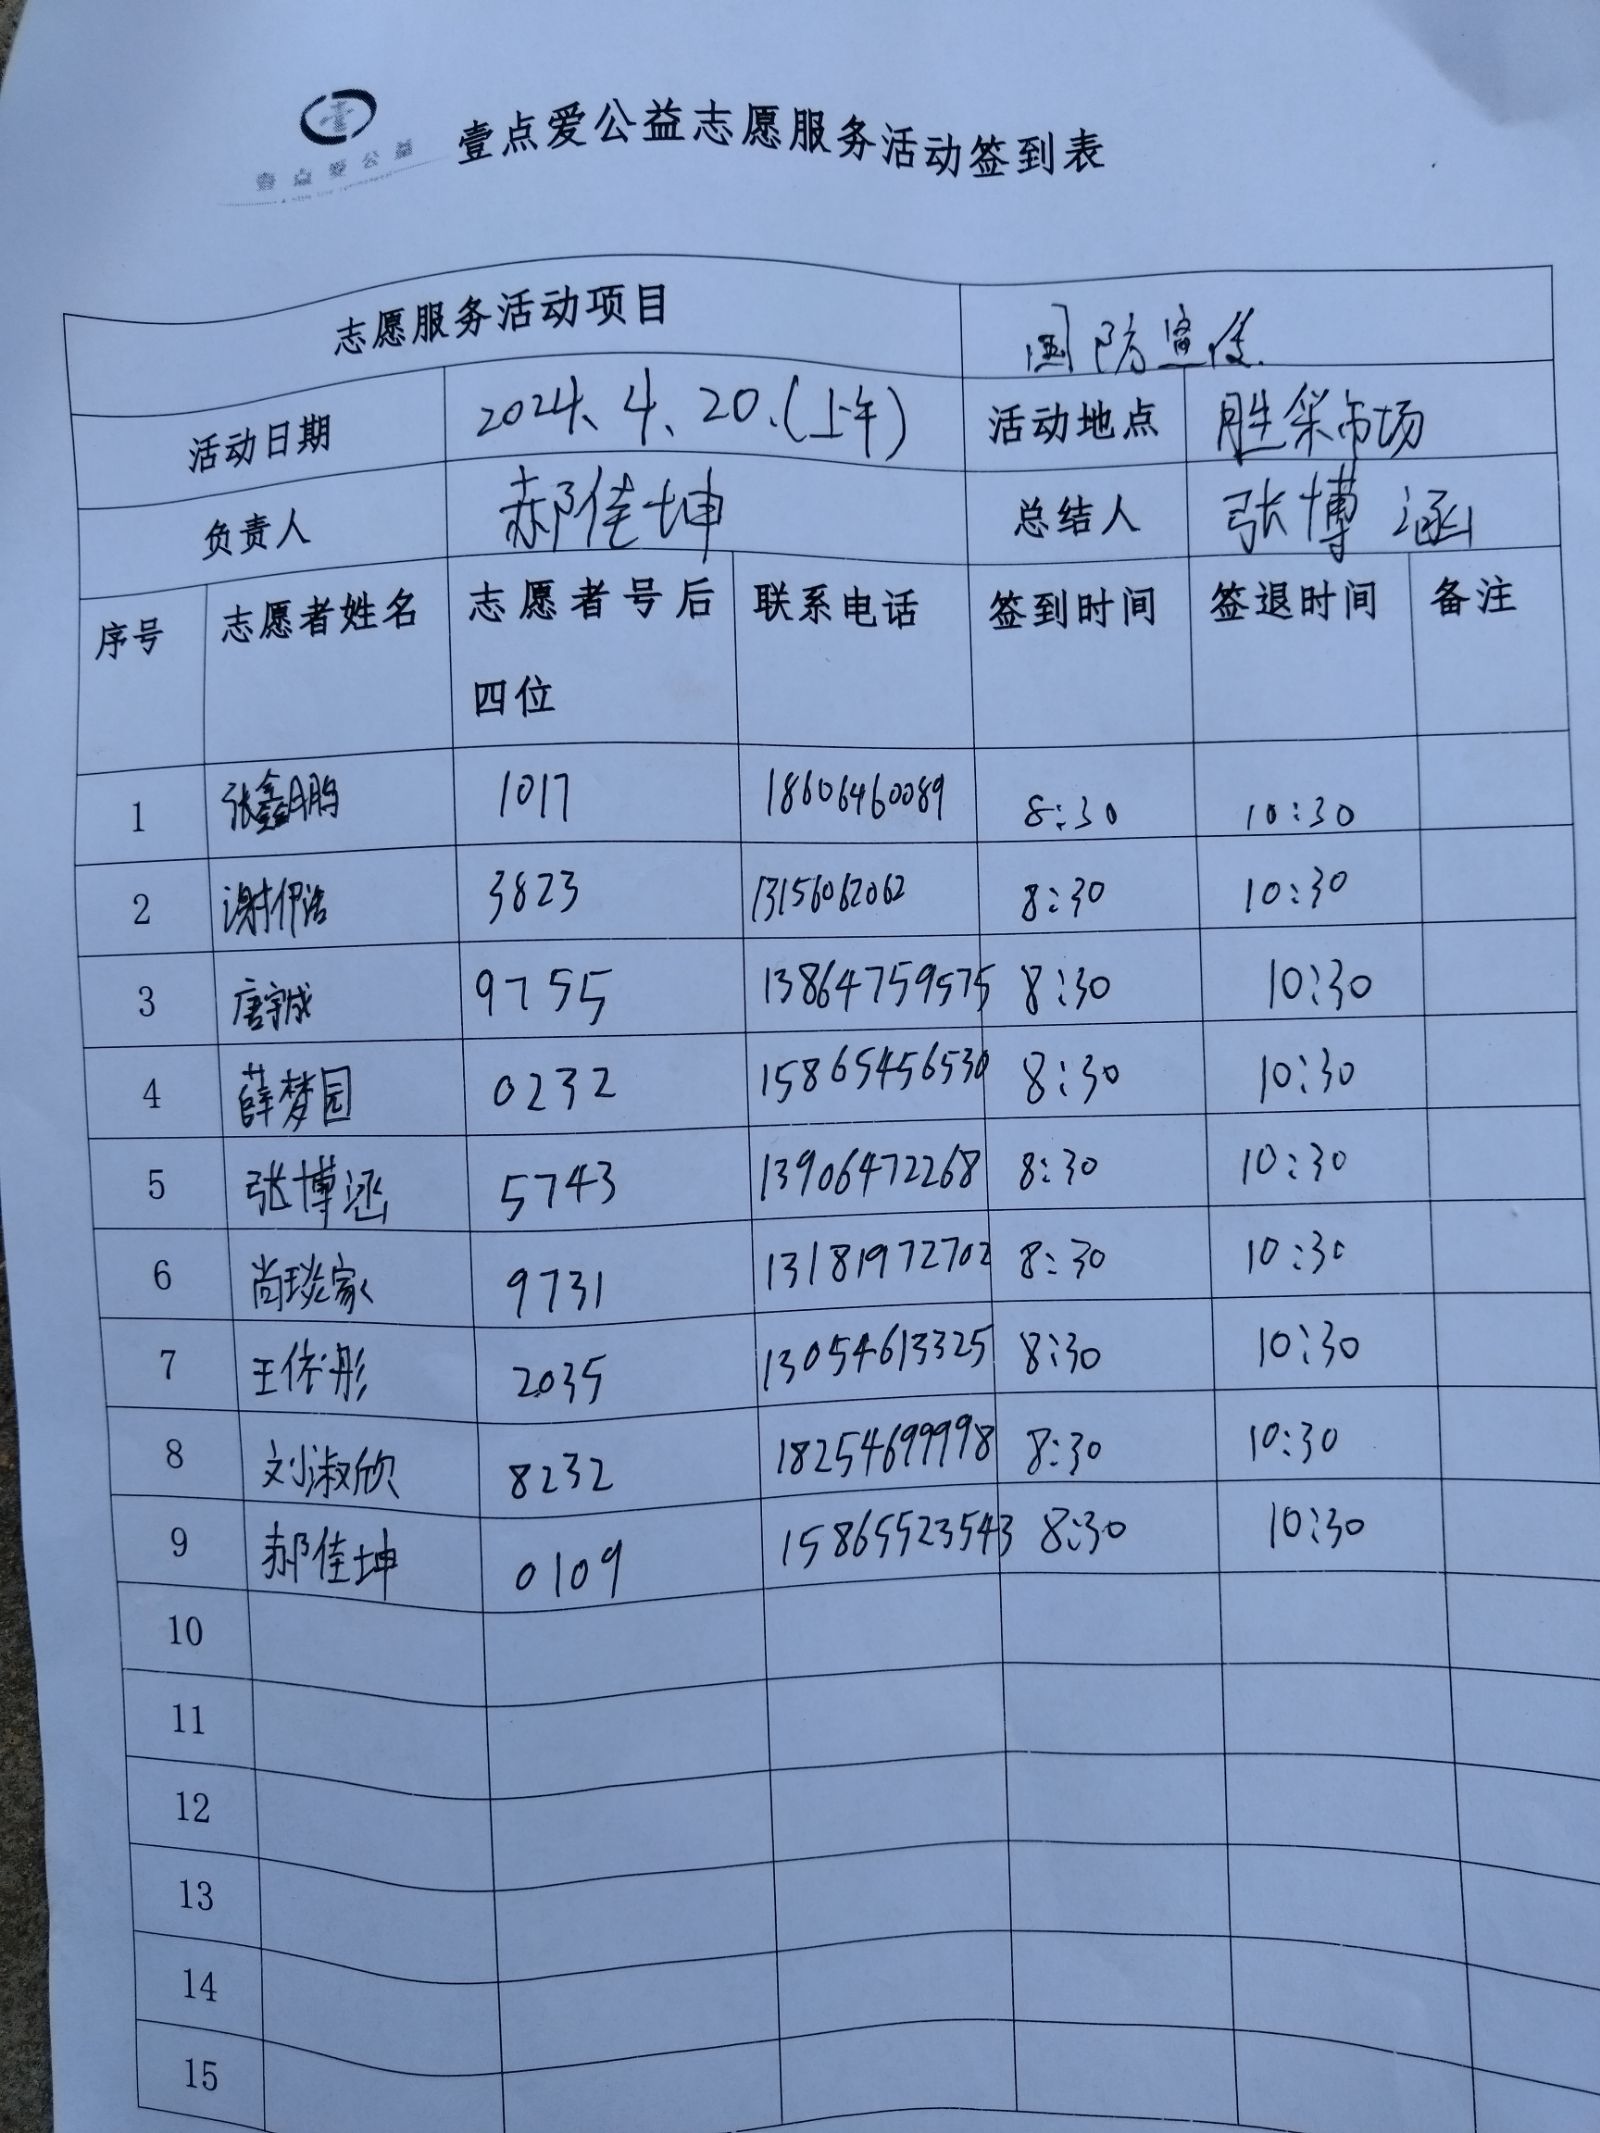 壹点爱公益
壹点爱公益志愿服务活动签到表
志愿服务活动项目 国防宣传
活动日期 2024、4、20、(上午) 活动地点 胜采市场
负责人 郝佳坤 总结人 张博涵
序号 志愿者姓名 志愿者号后四位 联系电话 签到时间 签退时间 备注
1 张鑫鹏 1017 18606460089 8:30 10:30
2 谢伊浩 3823 13156062062 8:30 10:30
3 唐宇诚 9755 13864759575 8:30 10:30
4 薛梦园 0232 15865456530 8:30 10:30
5 张博涵 5743 13906472268 8:30 10:30
6 尚琰家 9731 13181972702 8:30 10:30
7 王依彤 2035 13054613325 8:30 10:30
8 刘淑欣 8232 18254699998 8:30 10:30
9 郝佳坤 0109 15865523543 8:30 10:30
10
11
12
13
14
15